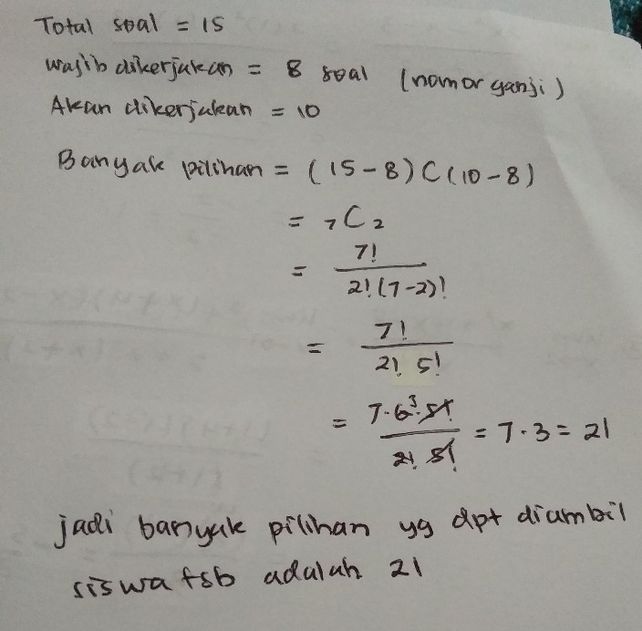 Total soal = 15
wajib dikerjakan = 8 soal (nomor ganji)
Akan dikerjakan = 10
Banyak pilihan = (15-8)C(10-8)
= 7C2
= 7! / 2!(7-2)!
= 7! / 2! 5!
= 7·6³·5! / 2! 5! = 7·3 = 21
jadi banyak pilihan yg dpt diambil
siswa tsb adalah 21